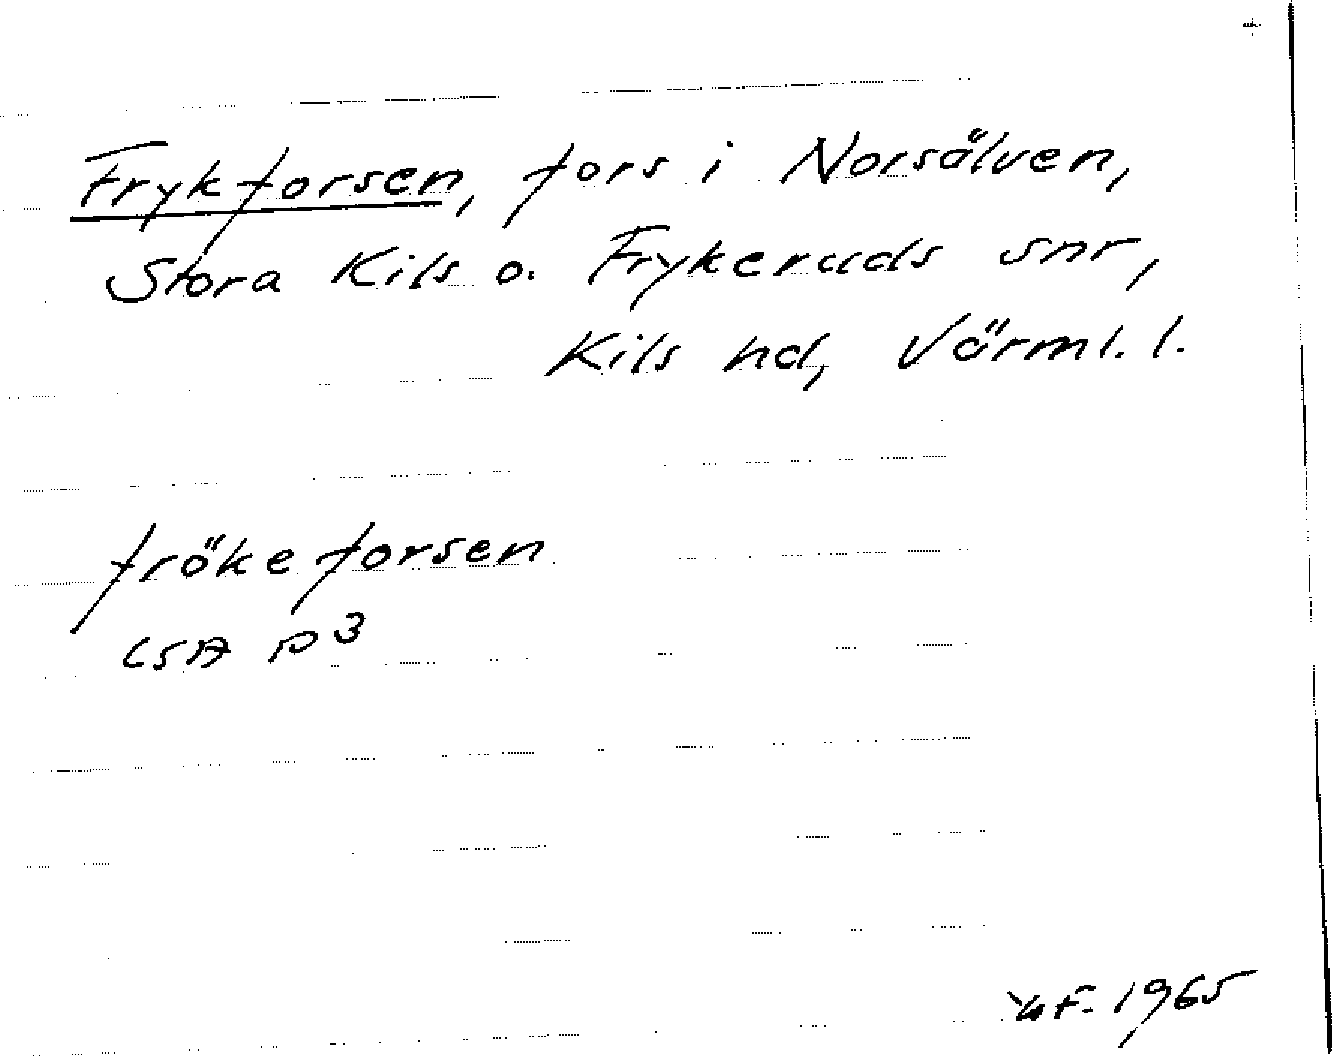 Frykforsen, fors i Norsälven,
Stora Kils o. Frykeruds snr,
Kils hd, Värml. l.
frökeforsen
LSA P3
F. 1965